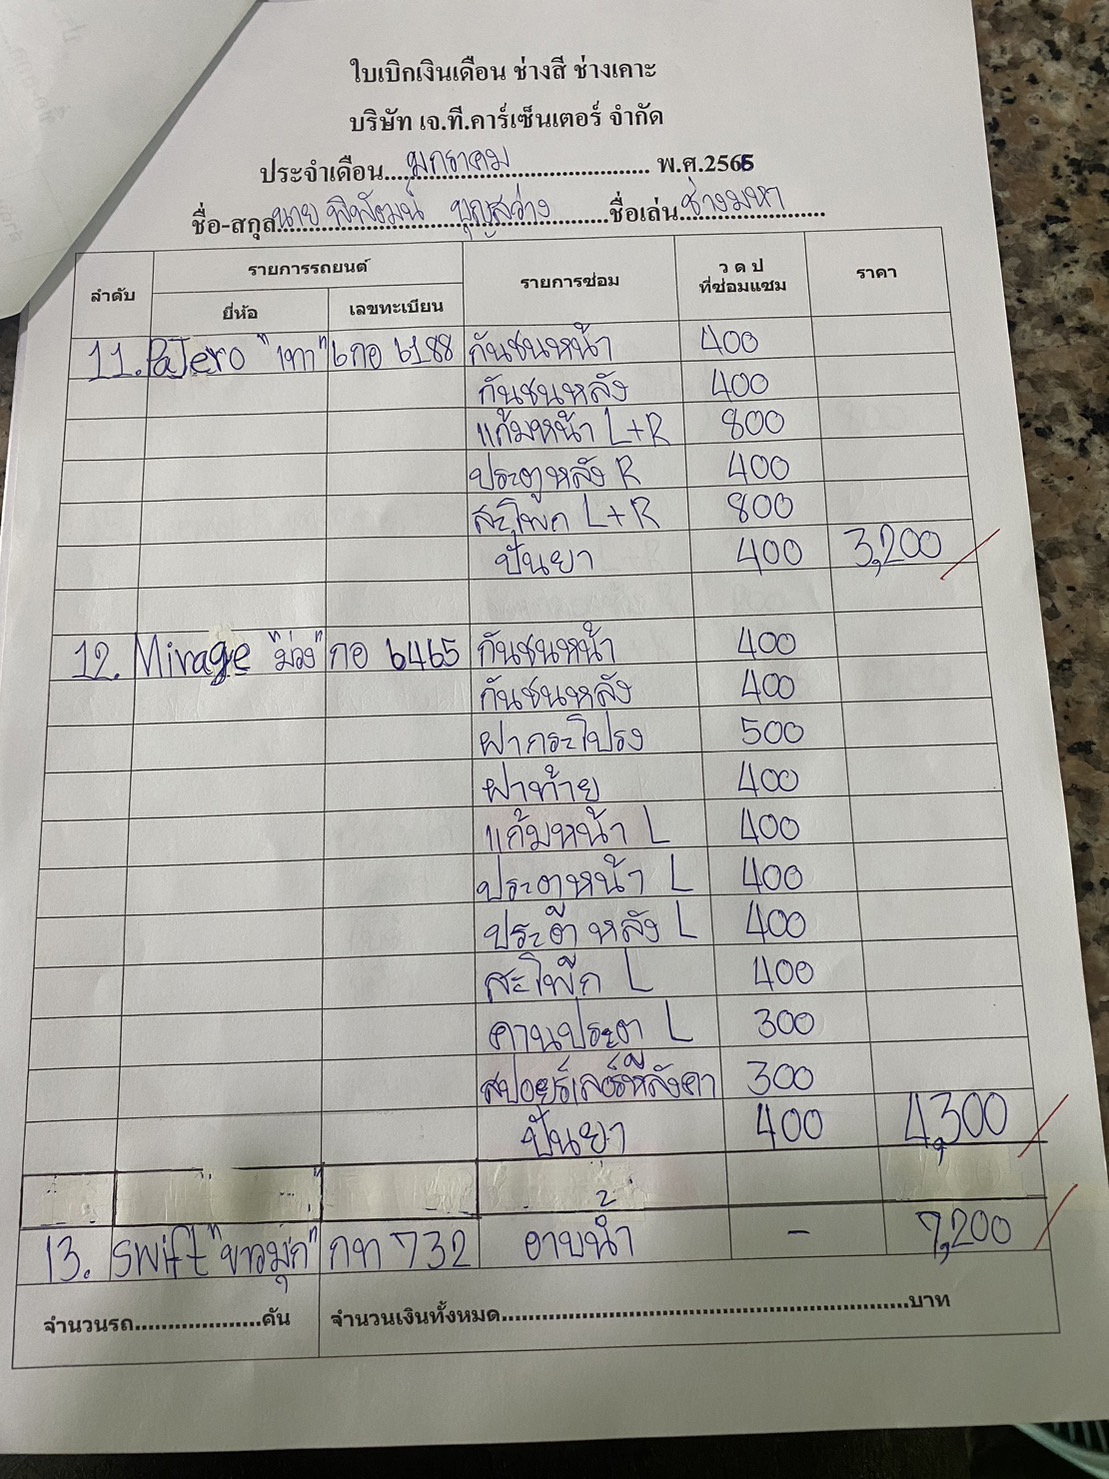 ใบเบิกเงินเดือน ช่างสี ช่างเคาะ
บริษัท เจ.ที.คาร์เซ็นเตอร์ จำกัด
ประจำเดือน มกราคม พ.ศ.2565
ชื่อ-สกุล นาย พิพัฒน์ บุญสว่าง ชื่อเล่น ช่างมหา
ลำดับ รายการรถยนต์ รายการซ่อม ว ด ป ที่ซ่อมแซม ราคา
ยี่ห้อ เลขทะเบียน
11. PaJero "เทา" 6กอ 6188 กันชนหน้า 400
กันชนหลัง 400
แก้มหน้า L+R 800
ประตูหลัง R 400
สะโพก L+R 800
ปั่นยา 400 3,200
12. Mirage "ม่วง" กอ 6465 กันชนหน้า 400
กันชนหลัง 400
ฝากระโปรง 500
ฝาท้าย 400
แก้มหน้า L 400
ประตูหน้า L 400
ประตู หลัง L 400
สะโพก L 400
คานประตู L 300
สปอยร์เลอร์หลังคา 300
ปั่นยา 400 4,300
13. swift "ขาวมุก" กท 732 อาบน้ำ - 7,200
จำนวนรถ....................คัน จำนวนเงินทั้งหมด....................บาท